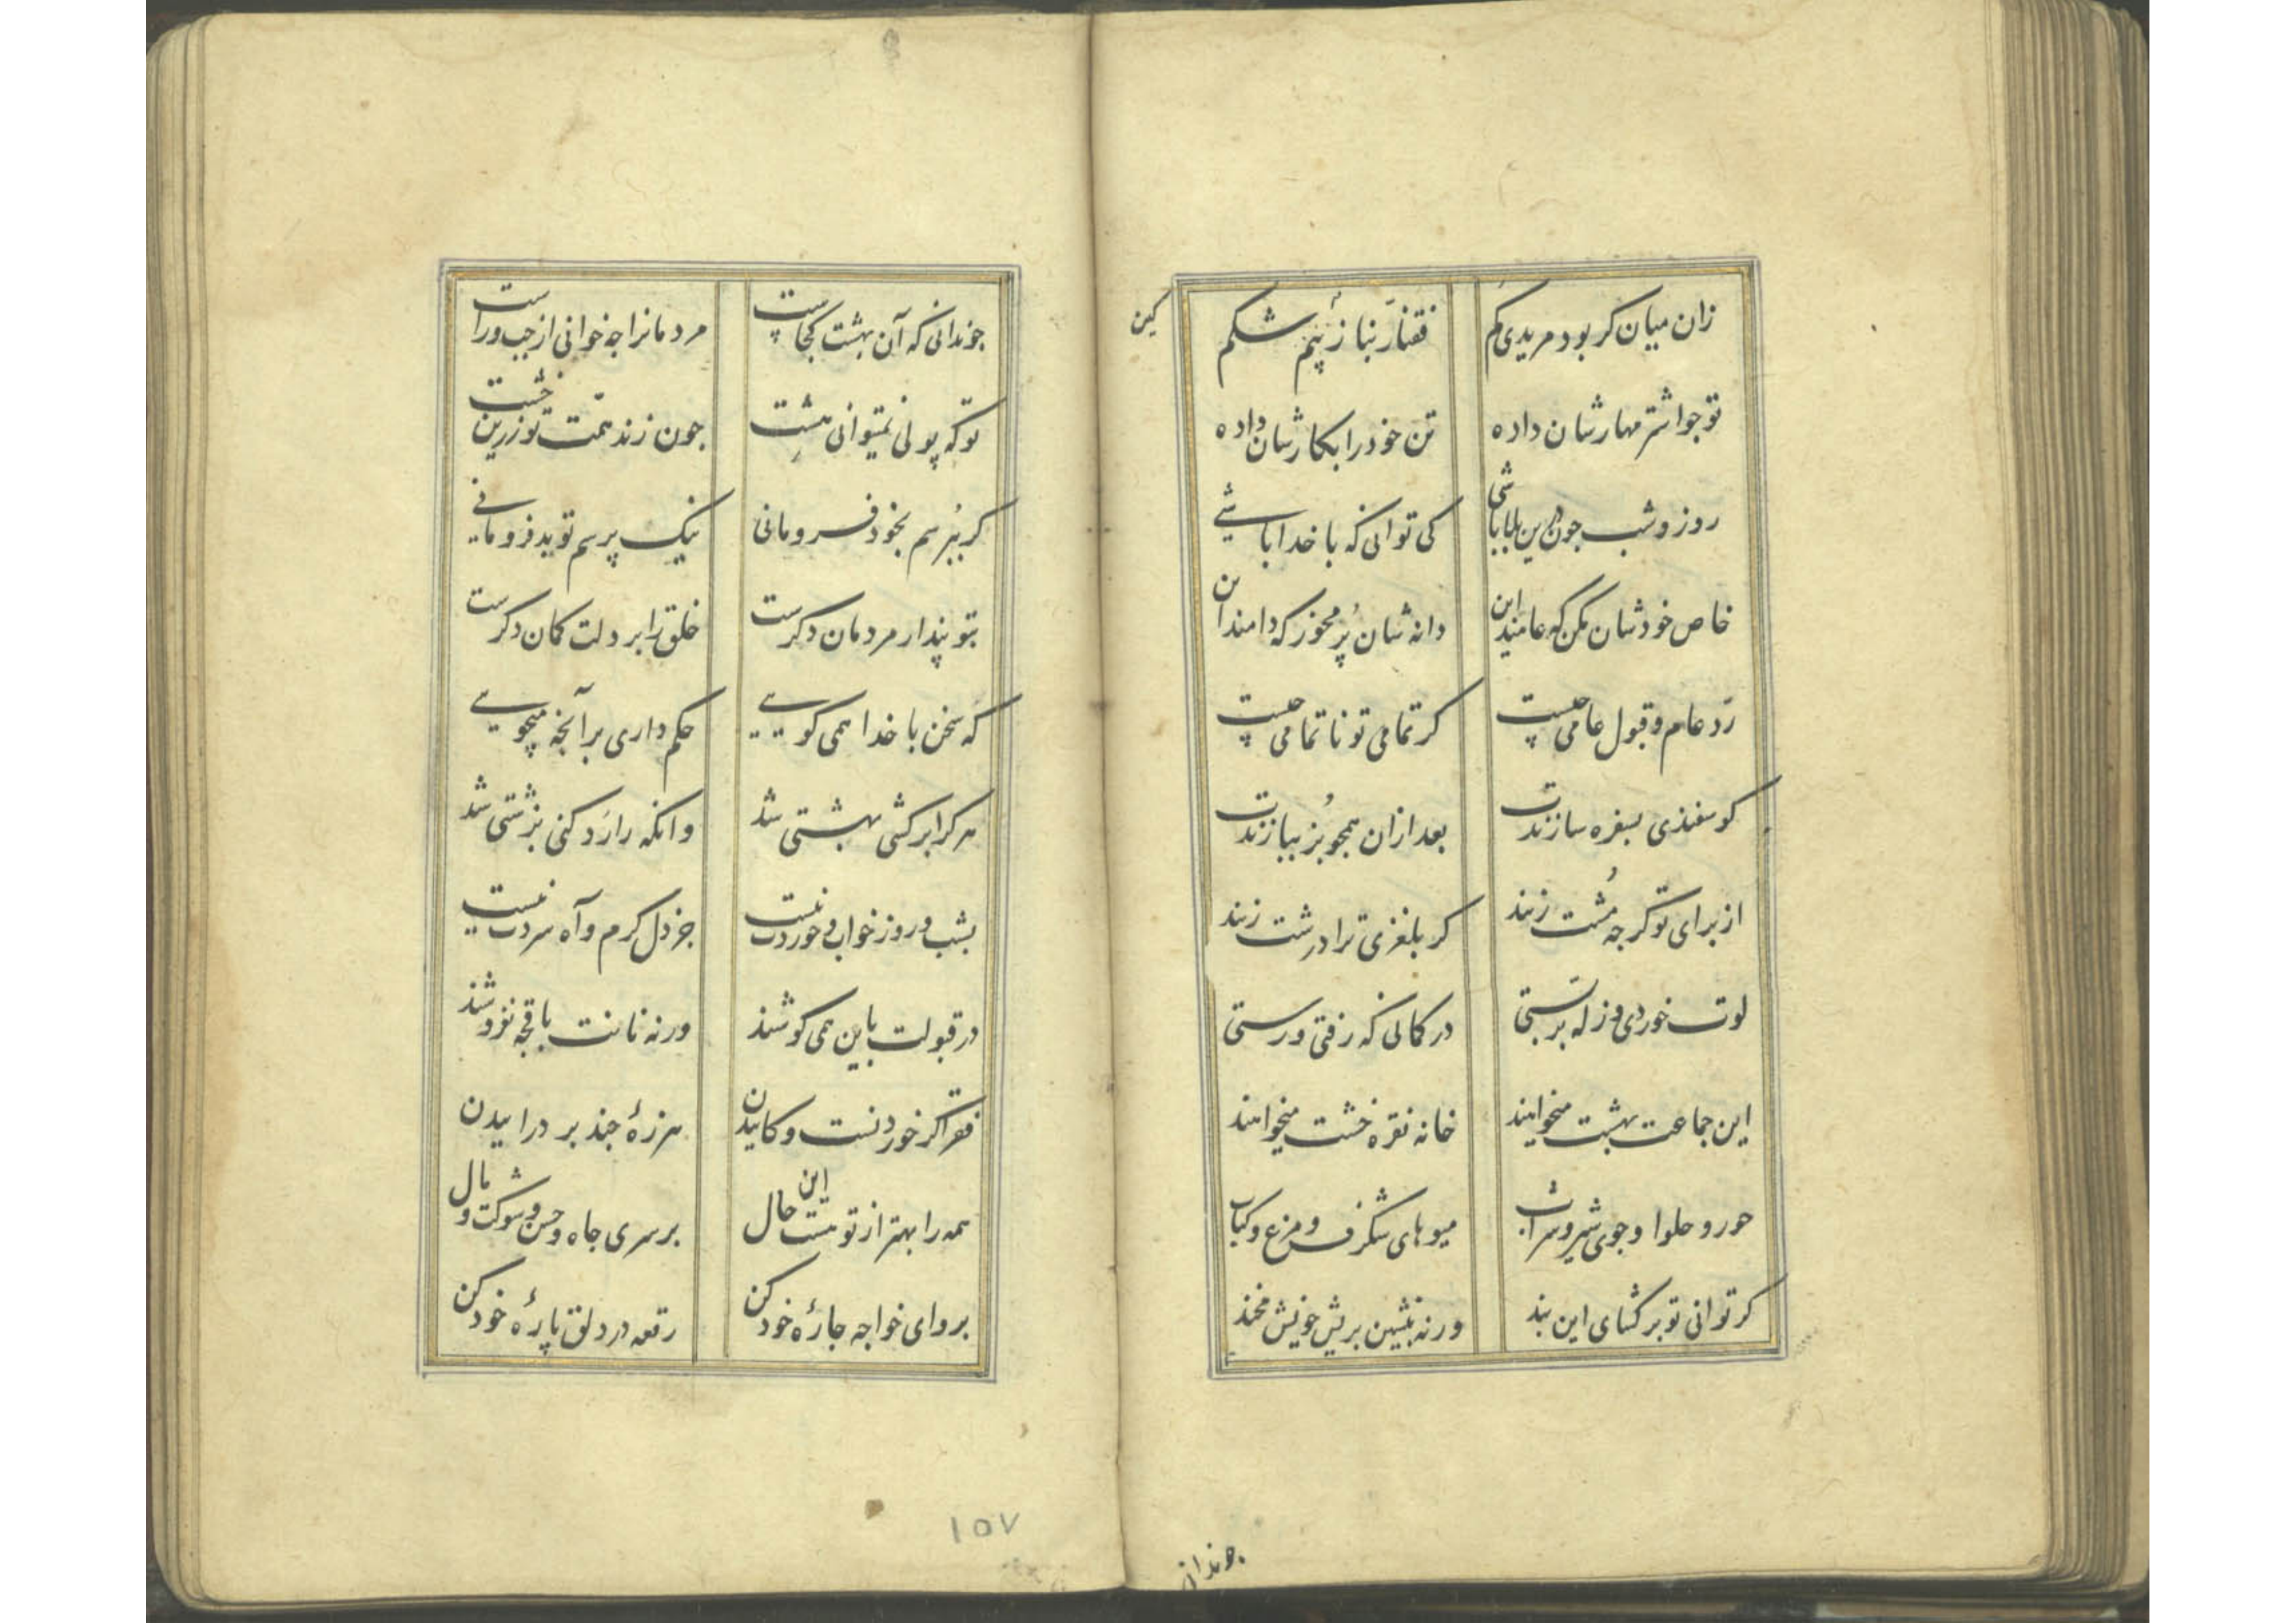 زان میان کر بود مریدی کم فقنار نباز پنم شکم
تو جو اشتر مهارشان داده تن خود را بکارشان داده
روز و شب جون درین بلا باشی کی توانی که با خدا باشی
خاص خودشان مکن که عامند این دانه شان پر مخور که دامند این
رد عام و قبول عامی چیست کر تمامی تو ناتمامی چیست
کوسفندی بسفره سازندت بعد ازان همجو بز ببازندت
از برای تو کرجه مشت زنند کر بلغزی ترا درشت زنند
لوت خوردی و زله بربستی در کمالی که رفتی و رستی
این جماعت بهشت میخواهند خانه نقره خشت میخواهند
حور و حلوا و جوی شیر و شراب میوهای شکرف و مرغ و کباب
کر توانی تو برکشای این بند ورنه بنشین بریش خویش مخند
کین
جوندانی
جوندانی که آن بهشت کجاست مردمانرا جه خوانی از جب و راست
تو که پولی نمیتوانی هشت جون زند همت تو زرین خشت
کر بپرسم بخود فرومانی نیک پرسم تو بد فرومانی
بتو پندار مردمان دکرست خلق را بر دلت کمان دکرست
که سخن با خدا همی کویی حکم داری بر آنجه میجویی
هر کرا برکشی بهشتی شد وانکه را رد کنی بزشتی شد
بشب و روز خواب و خوردت نیست جز دل کرم و آه سردت نیست
در قبولت باین همی کوشند ورنه نانت باقجه نفروشند
فقر اکر خوردنست و کاییدن هرزهٔ جند بر دراییدن
همه را بهتر از تو هست این حال بر سری جاه و حسن و شوکت و مال
برو ای خواجه جارهٔ خود کن رقعه در دلق پارهٔ خود کن
۱۵۷